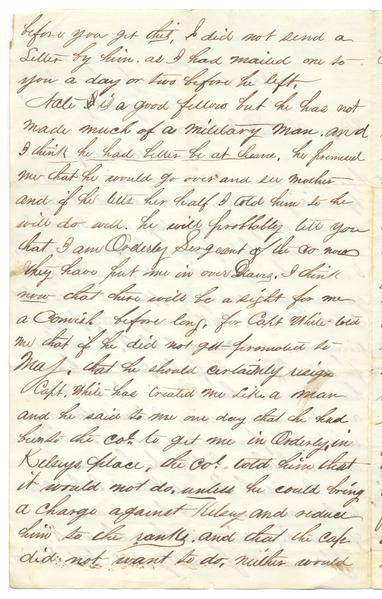 before you get this, I did not send a
Letter by him. as I had mailed one to
you a day or two before he left.
Nate is a good fellow but he has not
made much of a military man. and
I think he had better be at home, he promised
me that he would go over and see mother
and if he tells her half I told him to he
will do well. he will probbably tell you
that I am Orderly Sergeant of the co now
they have put me in over Davis. I think
now that there will be a sight for me
a Comish before long, for Capt White told
me that if he did not get promoted to
Maj. that he should certainly resign
Capt. White has treated me Like a man
and he said to me one day that he had
been to the col. to get me in Orderly, in
Kelseys place, the col. told him that
it would not do, unless he could bring
a charge against Kelsey and reduce
him to the ranks. and that the Capt
did not want to do, neither would